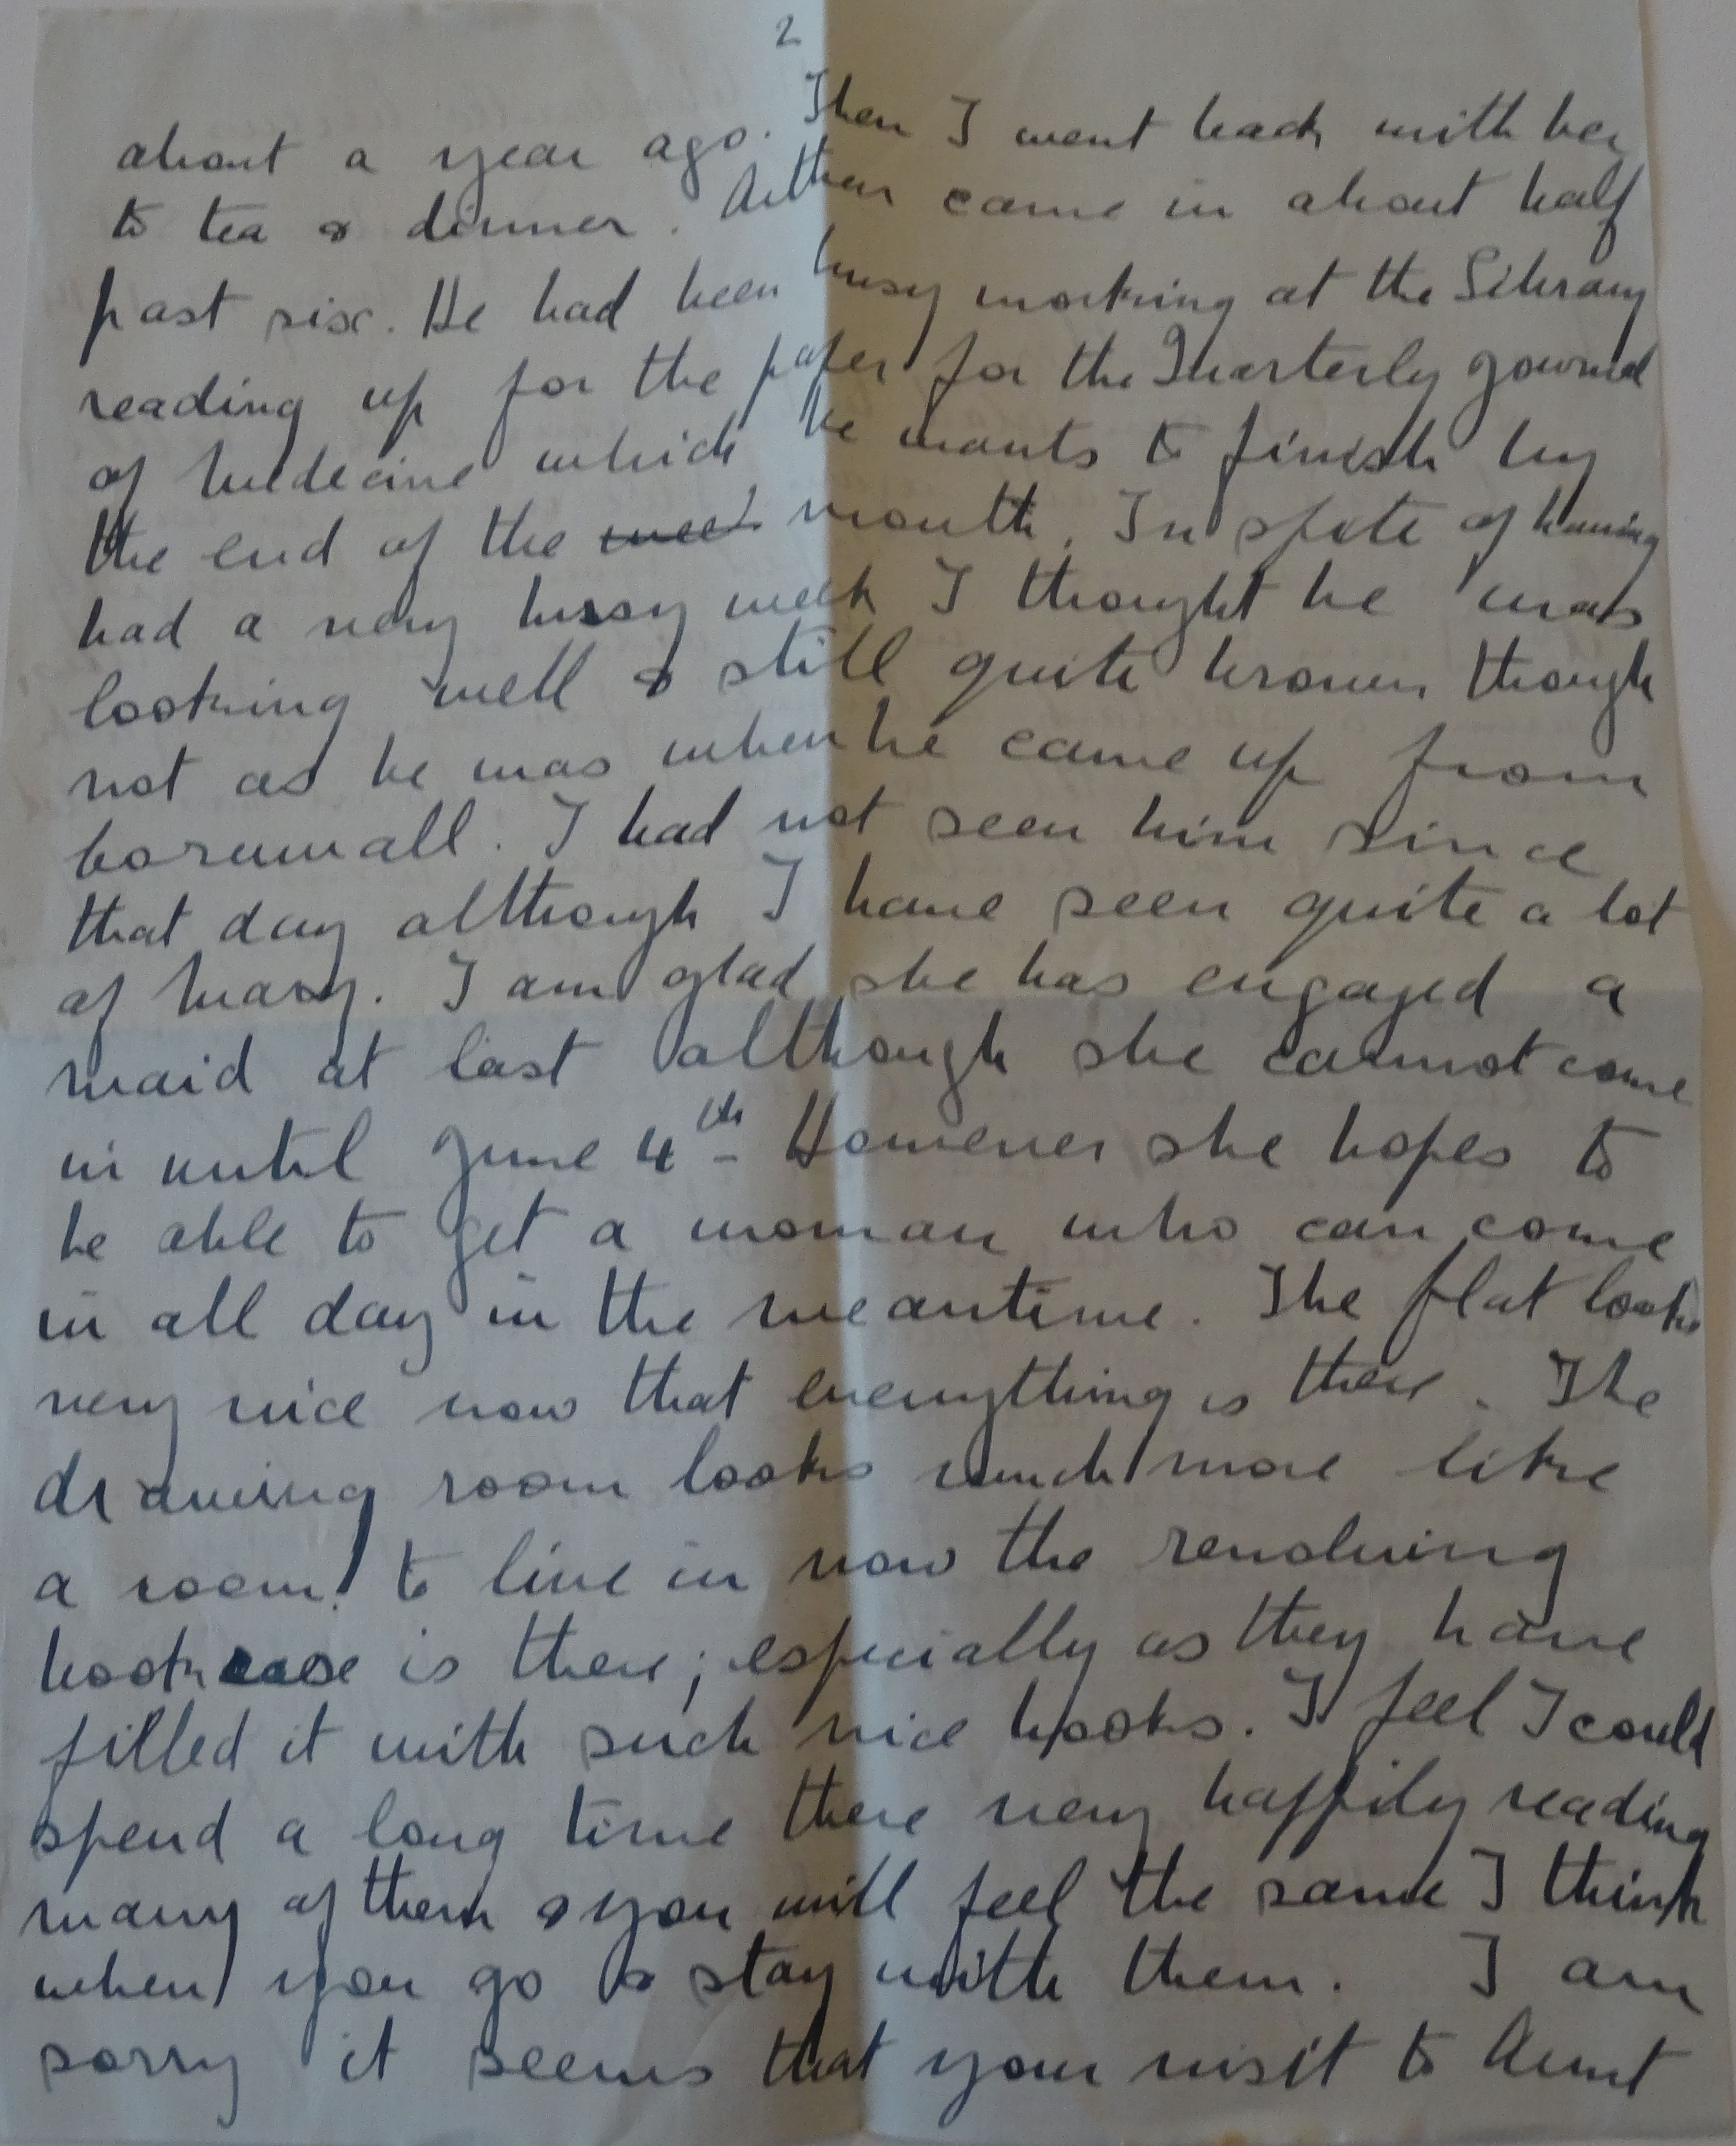 2
about a year ago. Then I went back with her
to tea & dinner. Arthur came in about half
past six. He had been busy working at the Library
reading up for the paper for the Quarterly Journal
of Medecine which he wants to finish by
the end of the week month. In spite of having
had a very bussy week I thought he was
looking well & still quite brown though
not as he was when he came up from
Cornwall. I had not seen him since
that day although I have seen quite a lot
of Mary. I am glad she has engaged a
maid at last although she cannot come
in until June 4th. However she hopes to
be able to get a woman who can come
in all day in the meantime. The flat looks
very nice now that everything is there. The
drawing room looks much more like
a room to live in now the revolving
bookcase is there; especially as they have
filled it with such nice books. I feel I could
spend a long time there very happily reading
many of them & you will feel the same I think
when you go to stay with them. I am
sorry it seems that your visit to Aunt